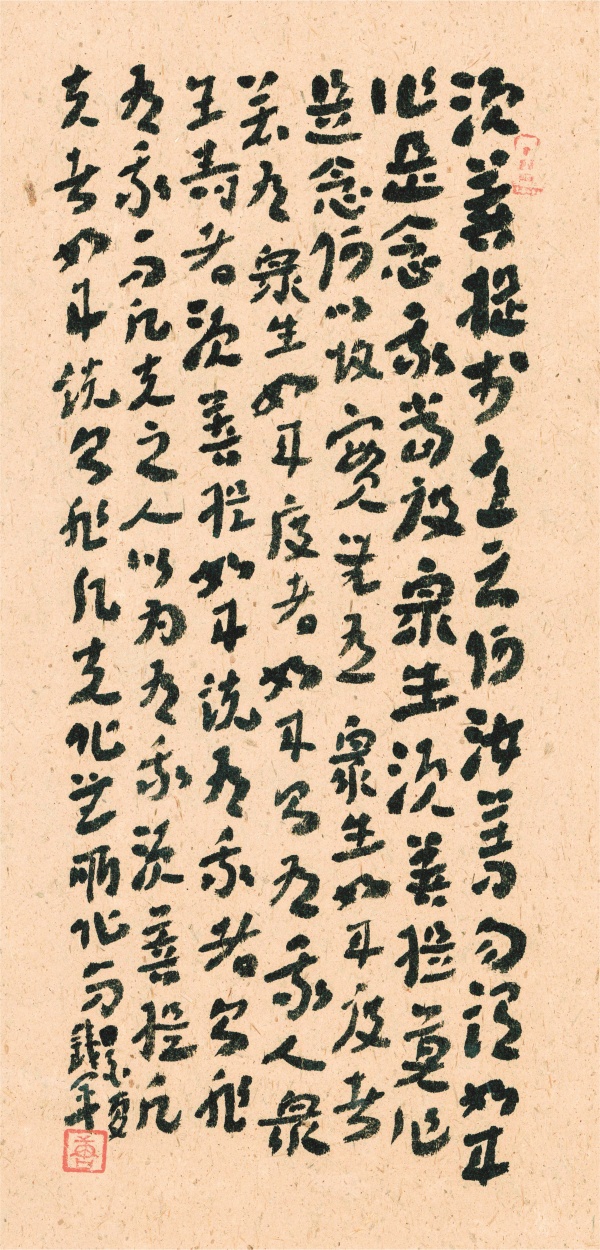 須菩提於意云何汝等勿謂如来
作是念我當度衆生須菩提莫作
是念何以故實無有衆生如来度者
若有衆生如来度者如来即有我人衆
生壽者須菩提如来説有我者即非
有我而凡夫之人以為有我須菩提凡
夫者如来説即非凡夫化無所化分